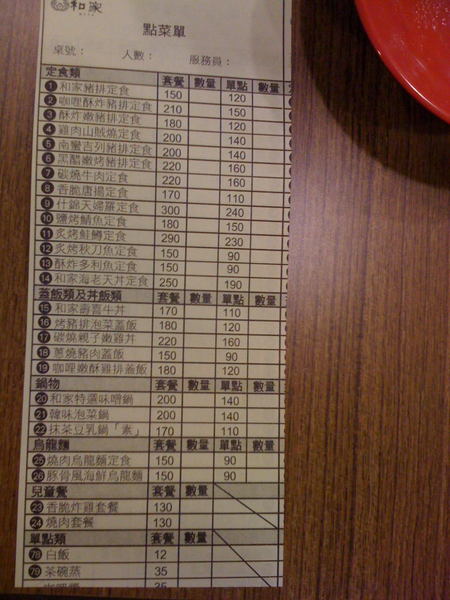 和家
點菜單
桌號： 人數： 服務員：
定食類 套餐 數量 單點 數量
1 和家豬排定食 150 120
2 咖哩酥炸豬排定食 210 150
3 酥炸嫩豬排定食 180 120
4 雞肉山賊燒定食 200 140
5 南蠻吉列豬排定食 200 140
6 黑醋嫩烤豬排定食 220 160
7 碳燒牛肉定食 220 160
8 香脆唐揚定食 170 110
9 什錦天婦羅定食 300 240
10 鹽烤鯖魚定食 180 150
11 炙烤鮭鱒定食 290 230
12 炙烤秋刀魚定食 150 90
13 酥炸多利魚定食 150 90
14 和家海老天丼定食 250 190
蓋飯類及丼飯類 套餐 數量 單點 數量
15 和家壽喜牛丼 170 110
16 烤豬排泡菜蓋飯 180 120
17 碳燒親子嫩雞丼 220 160
18 蔥燒豬肉蓋飯 150 90
19 咖哩嫩酥雞排蓋飯 180 120
鍋物 套餐 數量 單點 數量
20 和家特選味噌鍋 200 140
21 韓味泡菜鍋 200 140
22 抹茶豆乳鍋「素」 170 110
烏龍麵 套餐 數量 單點 數量
25 燒肉烏龍麵定食 150 90
26 豚骨風海鮮烏龍麵 150 90
兒童餐 套餐 數量
23 香脆炸雞套餐 130
24 燒肉套餐 130
單點類 套餐 數量
78 白飯 12
79 茶碗蒸 35